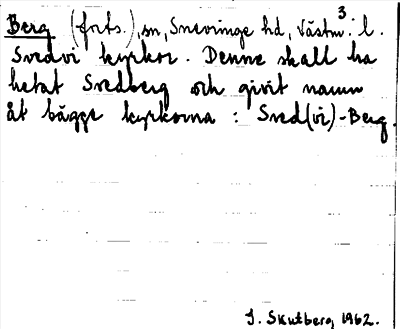 Berg (forts.), sn, Snevringe hd, Västm. l. 3
Svedvi kyrkor. Denne skall ha
hetat Svedberg och givit namn
åt bägge kyrkorna : Sved(vi)-Berg.
J. Skutberg 1962.